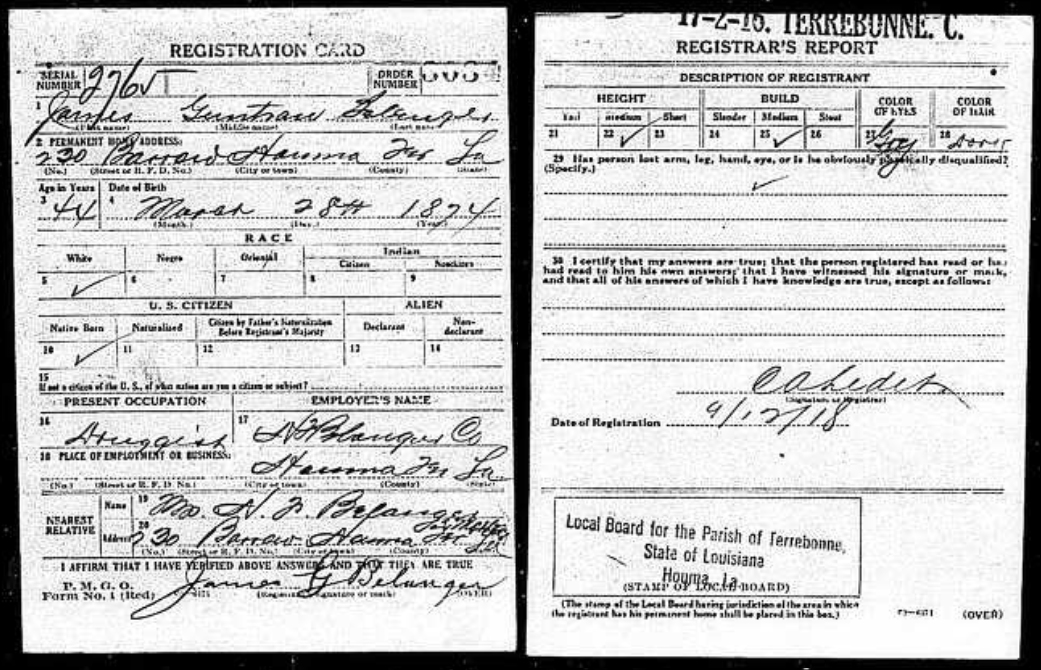 REGISTRATION CARD
SERIAL NUMBER
ORDER NUMBER
1 James Guntran Belanger
(First name) (Middle name) (Last name)
2 PERMANENT HOME ADDRESS:
230 Barrow Houma Ter La
(No.) (Street or R. F. D. No.) (City or town) (County) (State)
Age in Years Date of Birth
3 44 4 March 28th 1874
(Month.) (Day.) (Year.)
RACE
White Negro Oriental Indian
Citizen Noncitizen
5 ✓ 6 7 8 9
U. S. CITIZEN ALIEN
Native Born Naturalized Citizen by Father's Naturalization Before Registrant's Majority Declarant Non-declarant
10 ✓ 11 12 13 14
15 If not a citizen of the U. S., of what nation are you a citizen or subject?
PRESENT OCCUPATION EMPLOYER'S NAME
16 Druggist 17 Belanger Co
18 PLACE OF EMPLOYMENT OR BUSINESS:
Houma Ter La
(No.) (Street or R. F. D. No.) (City or town) (County) (State)
NEAREST RELATIVE
Name 19 H. F. Belanger
Address 20 230 Barrow Houma Ter La
(No.) (Street or R. F. D. No.) (City or town) (County) (State)
I AFFIRM THAT I HAVE VERIFIED ABOVE ANSWERS AND THAT THEY ARE TRUE
P. M. G. O.
Form No. 1 (Red) James G Belanger
(Registrant's signature or mark) (OVER)
TERREBONNE. C.
REGISTRAR'S REPORT
DESCRIPTION OF REGISTRANT
HEIGHT BUILD COLOR OF EYES COLOR OF HAIR
Tall Medium Short Slender Medium Stout
21 22 ✓ 23 24 25 ✓ 26 27 28
29 Has person lost arm, leg, hand, eye, or is he obviously physically disqualified?
(Specify.)
✓
30 I certify that my answers are true; that the person registered has read or has
had read to him his own answers; that I have witnessed his signature or mark,
and that all of his answers of which I have knowledge are true, except as follows:
C A Ledet
(Signature of Registrar)
Date of Registration 9/12/18
Local Board for the Parish of Terrebonne,
State of Louisiana
Houma, La.
(STAMP OF LOCAL BOARD)
(The stamp of the Local Board having jurisdiction of the area in which
the registrant has his permanent home shall be placed in this box.)
(OVER)